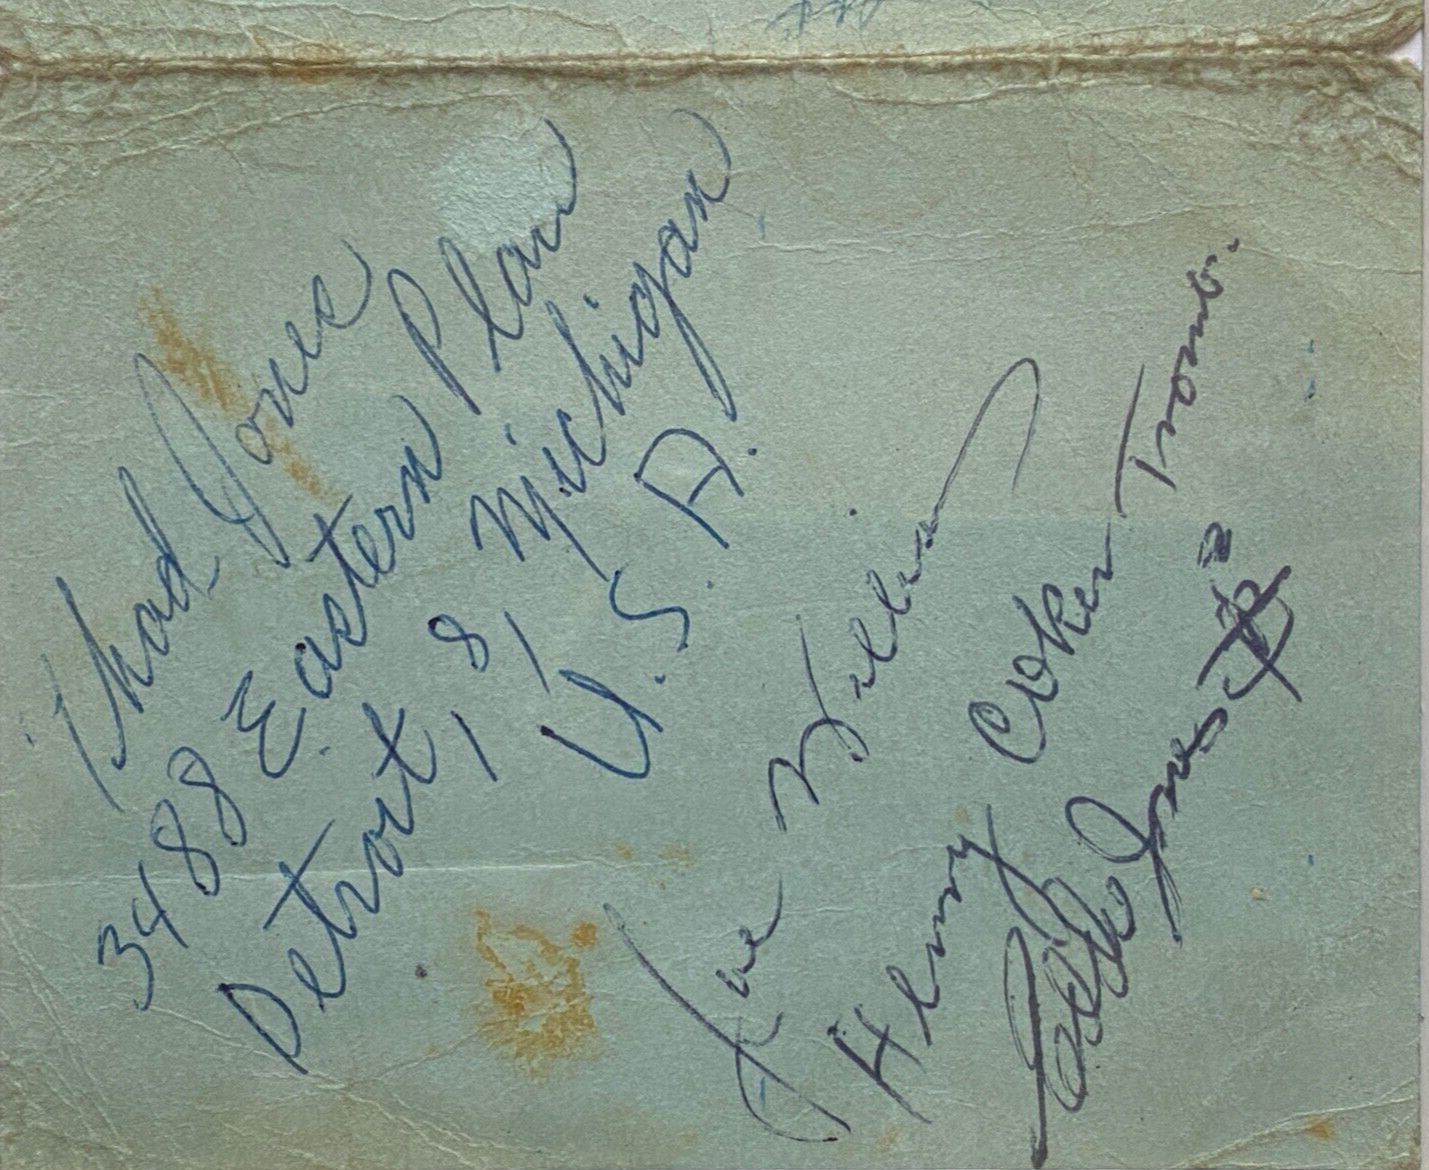 Thad Jones
3488 Eastern Place
Detroit, 8, Michigan
U. S. A.
Joe Williams
Henry Coker Tromb.
Eddie Jones